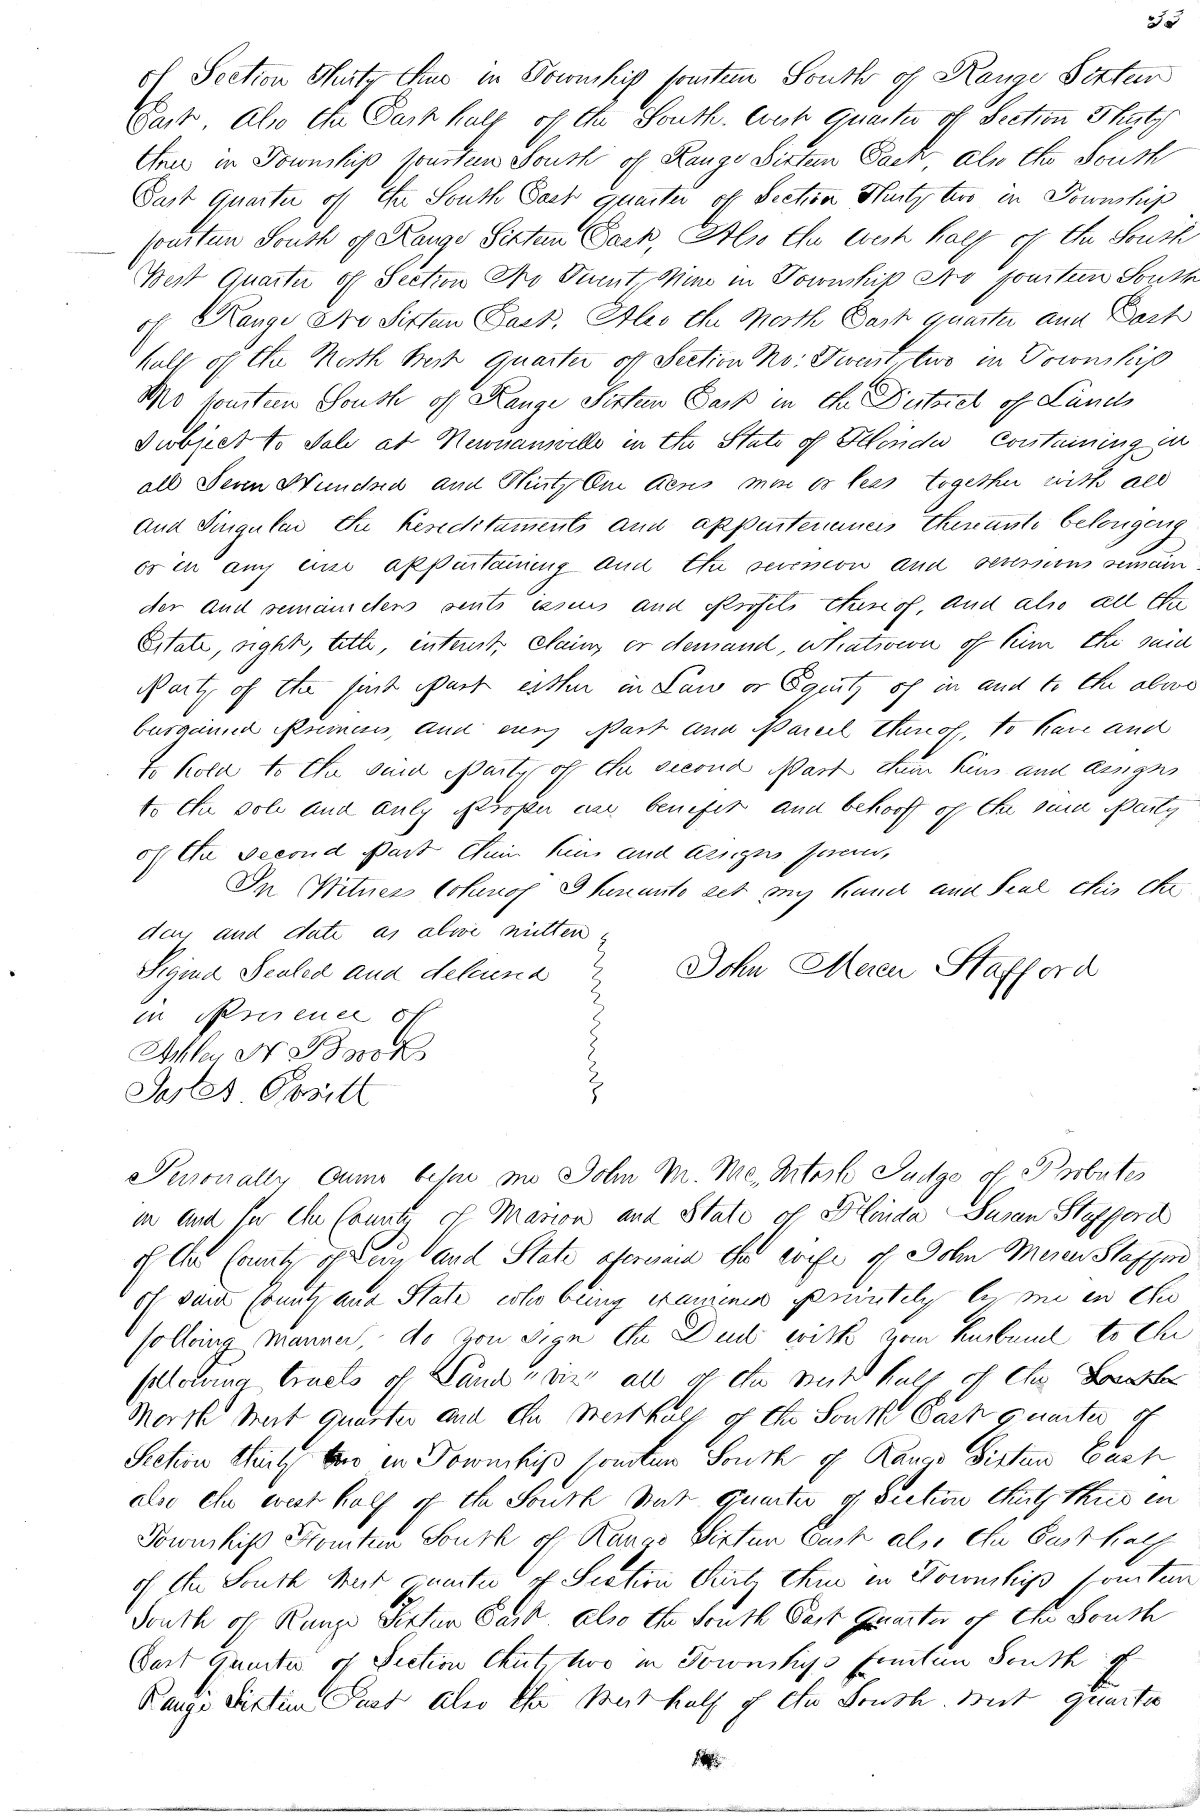 33
of Section Thirty three in Township fourteen South of Range Sixteen
East. Also the East half of the South. West quarter of Section Thirty
three in Township fourteen South of Range Sixteen East, also the South
East quarter of the South East quarter of Section Thirty two in Township
fourteen South of Range Sixteen East, Also the West half of the South
West quarter of Section No Twenty Nine in Township No fourteen South
of Range No Sixteen East. Also the North East quarter and East
half of the North West quarter of Section No: Twenty two in Township
No fourteen South of Range Sixteen East in the District of Lands
subject to sale at Newnansville in the State of Florida containing in
all Seven Hundred and Thirty One acres more or less together with all
and singular the hereditaments and appurtenances thereunto belonging
or in any wise appurtaining and the reversion and reversions remain-
der and remainders rents issues and profits thereof, and also all the
Estate, right, title, interest, claim or demand, whatsoever of him the said
Party of the first Part either in Law or Equity of in and to the above
bargained premises, and every Part and Parcel thereof, to have and
to hold to the said Party of the second Part their heirs and assigns
to the sole and only proper use benefit and behoof of the said Party
of the second Part their heirs and assigns forever,
In Witness Whereof I hereunto set my hand and Seal this the
day and date as above written
Signed Sealed and delivered
John Mercer Stafford
in Presence of
Ashley N Brooks
Jas A.
Personally came before me John M. McIntosh Judge of Probates
in and for the County of Marion and State of Florida Susan Stafford
of the County of Levy and State aforesaid the wife of John Mercer Stafford
of said County and State who being examined privately by me in the
following manner, do you sign the Deed with your husband to the
following tracts of Land "viz" all of the West half of the South
North West quarter and the West half of the South East quarter of
Section thirty two in Township fourteen South of Range Sixteen East
also the west half of the South West quarter of Section thirty three in
Township Fourteen South of Range Sixteen East also the East half
of the South West quarter of Section thirty three in Township fourteen
South of Range Sixteen East. also the South East quarter of the South
East quarter of Section thirty two in Township fourteen South of
Range Sixteen East also the West half of the South. West quarter